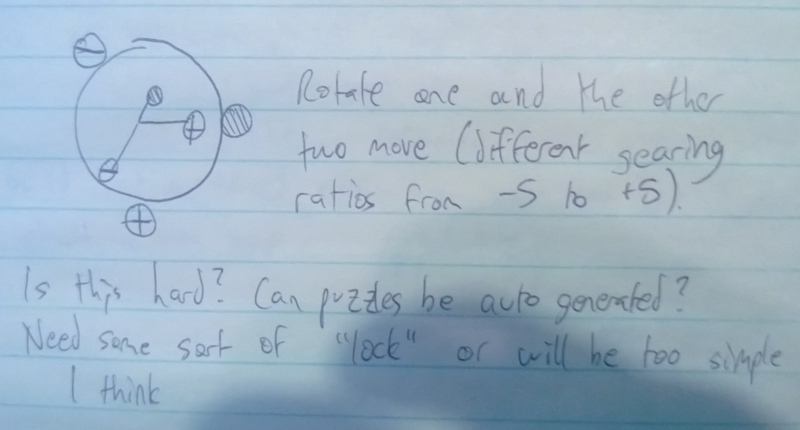 Rotate one and the other
two move (different gearing
ratios from -5 to +5).
Is this hard? Can puzzles be auto generated?
Need some sort of "lock" or will be too simple
I think